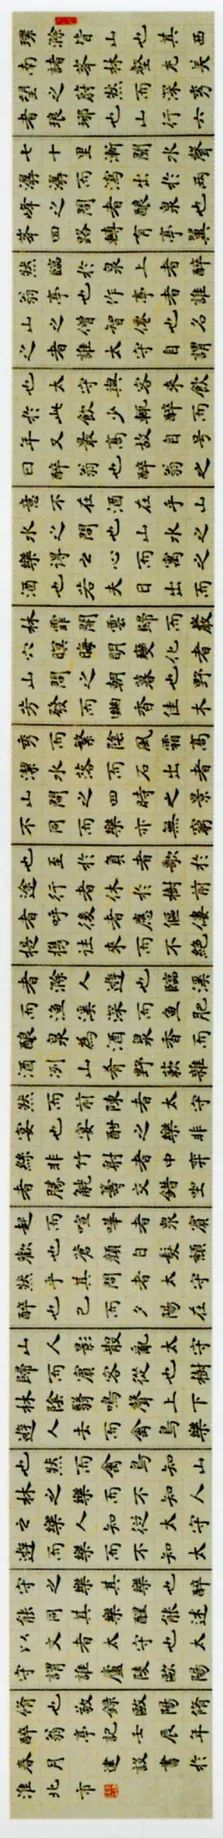 環滁皆山也其西
南諸峯林壑尤美
望之蔚然而深秀
者琅瑯也山行六
七十里漸聞水聲
潺潺而瀉出於兩
峰之間者釀泉也
峯回路轉有亭翼
然臨於泉上者醉
翁亭也作亭者誰
山之僧智僊也名
之者誰太守自謂
也太守與客來飲
於此飲少輒醉而
年又最高故自号
曰醉翁也醉翁之
意不在酒在乎山
水之間也山水之
樂得之心而寓之
酒也若夫日出而
林霏開雲歸而巖
穴暝晦明變化者
山間之朝暮也野
芳發而幽香佳木
秀而繁陰風霜高
潔水落而石出者
山間之四時之景
不同而樂亦無窮
也至於負者歌於
途行者休於樹前
者呼後者應傴僂
提攜往來而不絕
者滁人遊也臨溪
而漁溪深而魚肥
釀泉為酒泉香而
酒洌山肴野蔌雜
然而前陳者太守
宴也宴酣之樂非
絲非竹射者中弈
者勝觥籌交錯坐
起而喧嘩者眾賓
歡也蒼顏白髮頹
然乎其間者太守
醉也已而夕陽在
山人影散亂太守
歸而賓客從也樹
林陰翳鳴聲上下
遊人去而禽鳥樂
也然而禽鳥知山
林之樂而不知人
之樂人知從太守
遊而樂而不知太
守之樂其樂也醉
能同其樂醒能述
以文者太守也太
守謂誰廬陵歐陽
脩也敬錄歐陽脩
醉翁亭記壬辰年
春月建設書於
淮北市